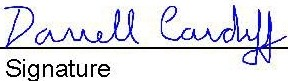 Darrell Cardiff
Signature